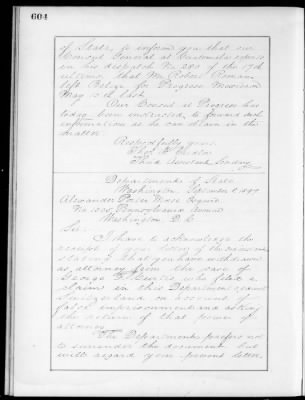 604
of State, to inform you that our
Consul General at Guatemala reports
in his despatch No. 280 of the 17th
ultimo, that Mr. Robert Romain
left Belize for Progreso
May 10th last.
Our Consul at Progreso has
today been instructed to forward such
information as he can obtain in the
matter.
Respectfully yours,
Third Assistant Secretary
Department of State,
Washington, September 8, 1897.
Alexander Porter Morse Esquire,
No. 1505 Pennsylvania Avenue
Washington, D.C.
Sir:
I have to acknowledge the
receipt of your letter of the
stating that you have withdrawn
as attorney from the case of
George D. who filed a
claim in this Department against
Switzerland on account of
false imprisonment and asking
the return of that power of
attorney.
The Department prefers not
to surrender the document but
will regard your present letter